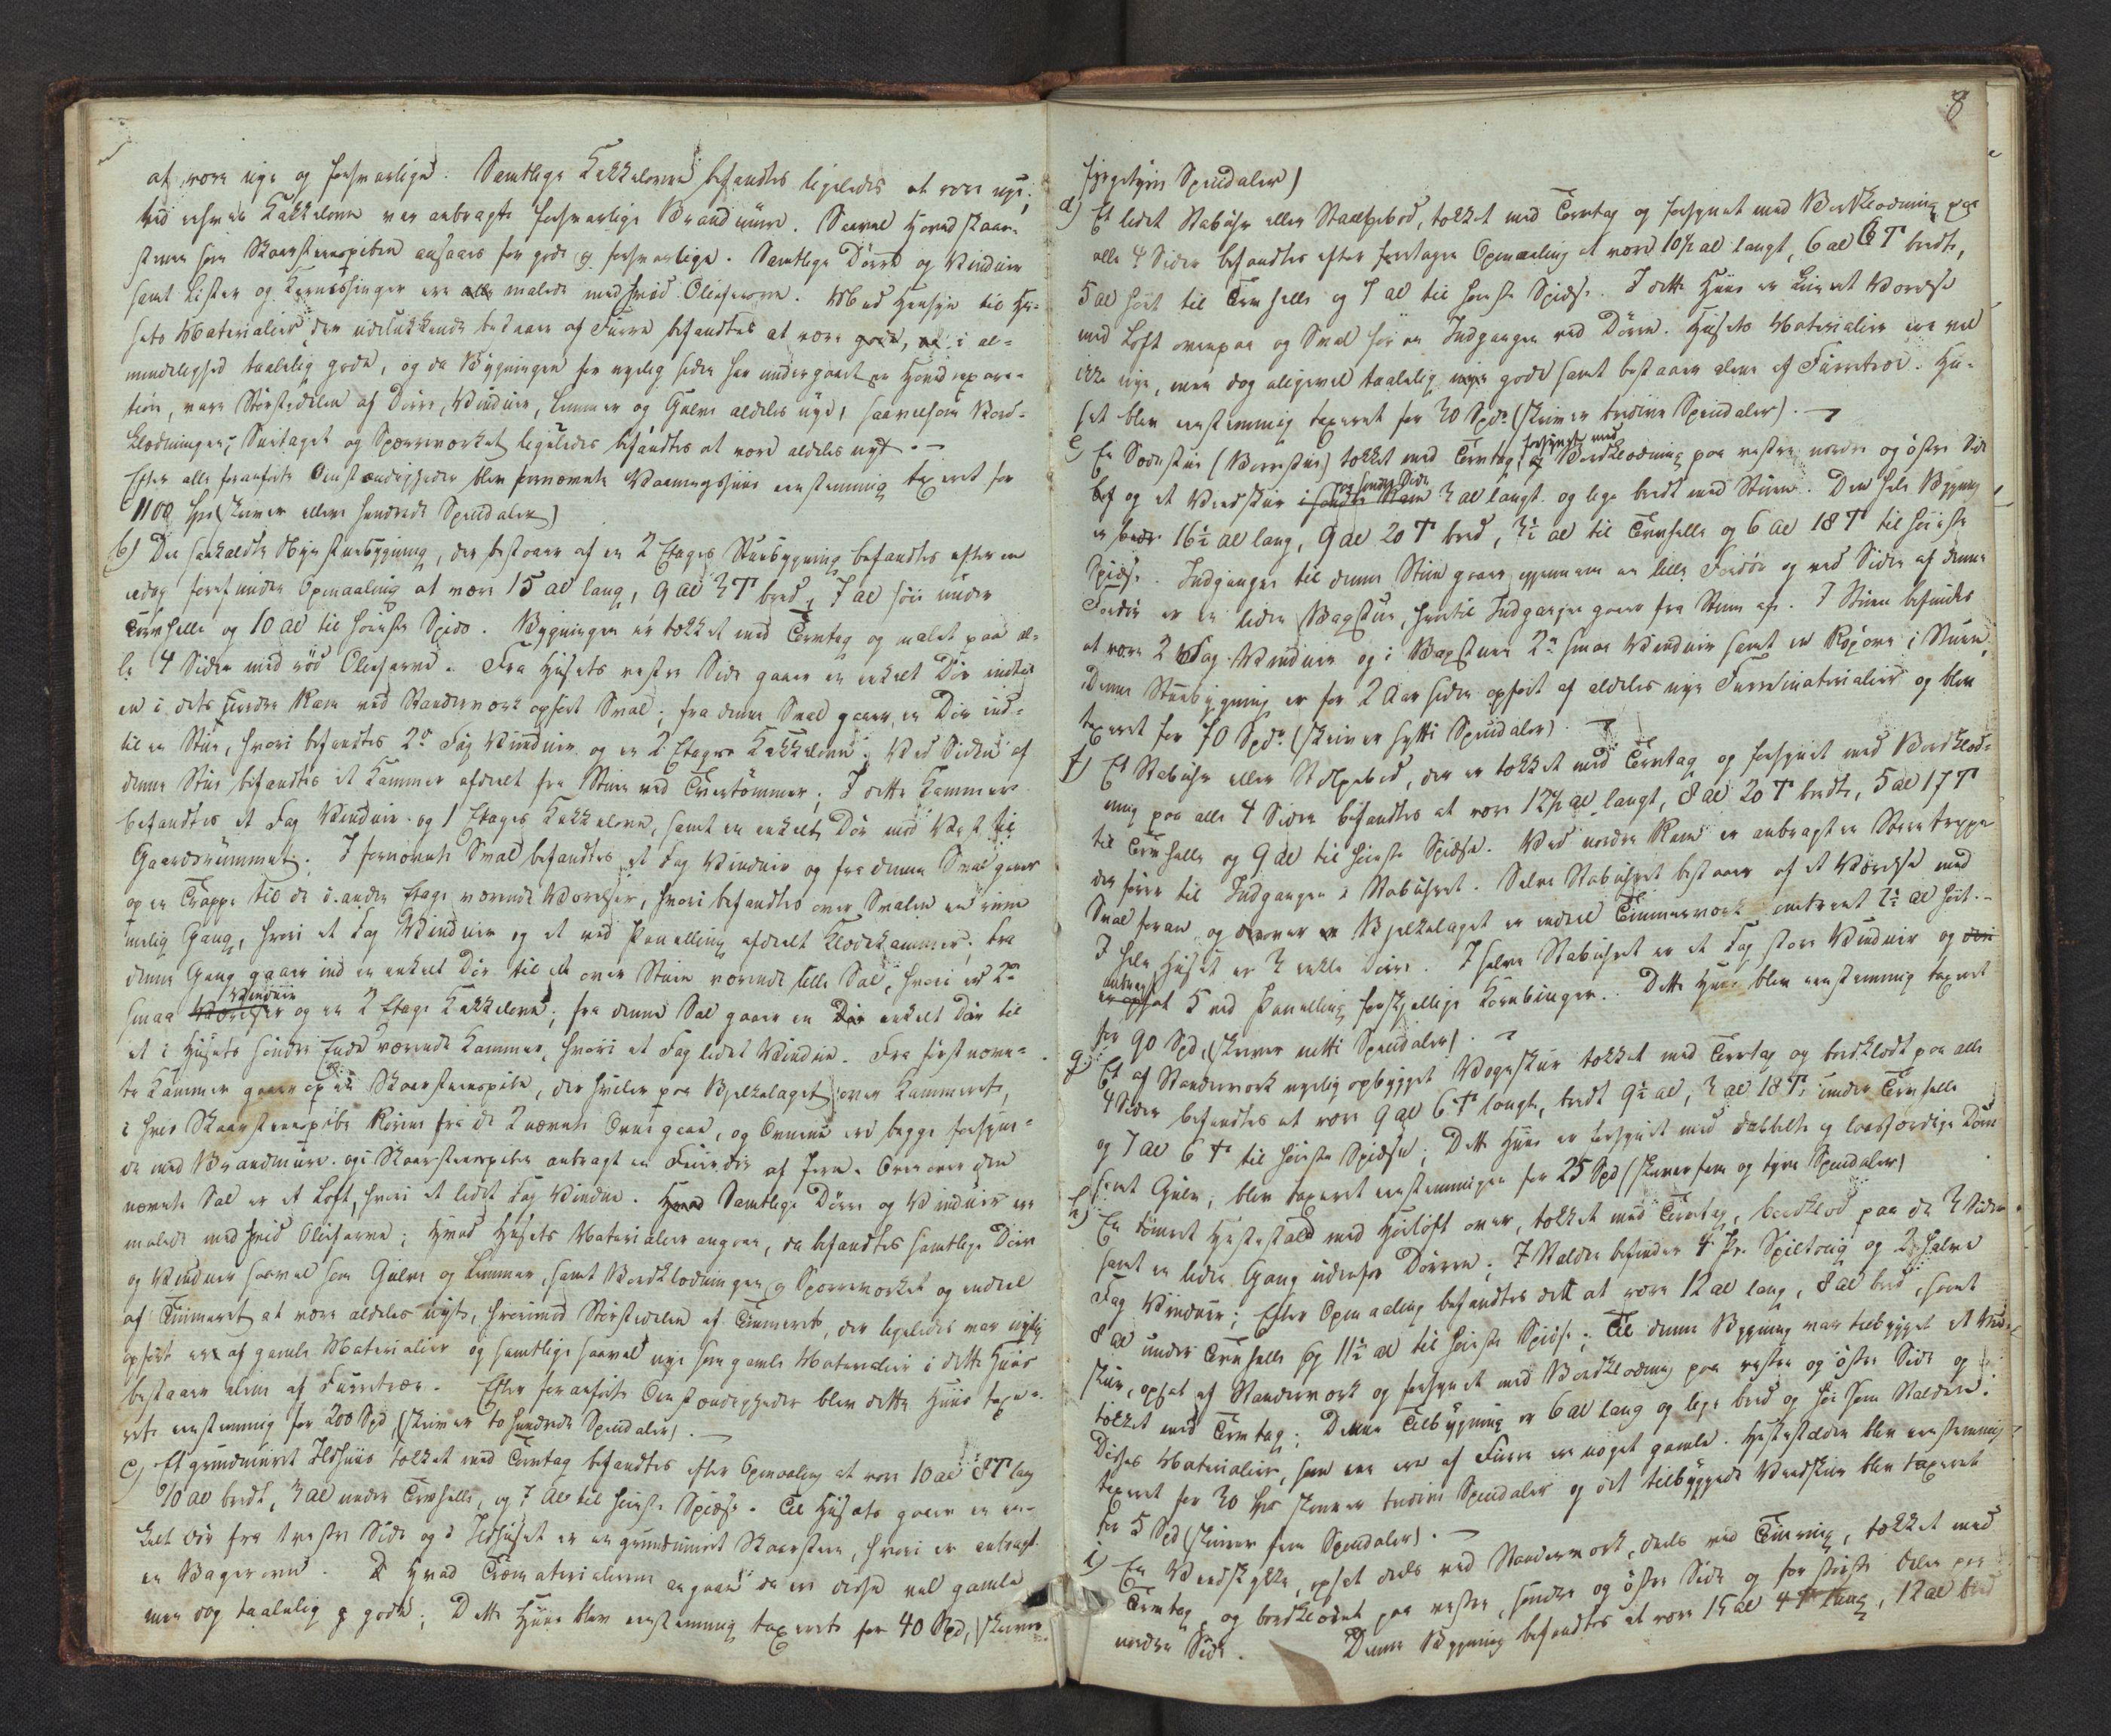 at være nye og forsvarlige. Samtlige Kakkelovne befandtes ligeledes at være nye;
ved enhver Kakkelovn var anbragte forsvarlige Brandmure. Saavel Hovedskaar-
stenen som Skaarsteenspiben ansaaes for gode og forsvarlige. Samtlige Dörre og Vinduer
samt Lister og Karnisninger ere alle malede med hvid Oliefarve. Med Hensyn til Hu-
sets Materialier, der udelukkende bestaaer af Furre befandtes at være gode, i al-
mindelighed taalelig gode, og da Bygningen for nyelig siden har undergaaet en Hovedrepara-
tion, vare Störstedelen af Dörre, Vinduer, Lemmer og Gulve aldeles nye, saavelsom Bord-
klædningen; Sutaget og Sperreværket ligeledes befandtes at være aldeles nyt. —
Efter alle foranførte Omstændigheder blev fornævnte Vaaningshuus eenstemmig taxeret for
1100 Spd (skriver elleve hundrede Speciedaler)
b) Den saakaldte Nye Stuebygning, der bestaaer af en 2 Etages Stuebygning befandtes efter en
idag foretagen Opmaaling at være 15 al lang, 9 al 3 T bred, 7 al höi under
Törvhelle og 10 al til höieste Spids. Bygningen er tækket med Törvtag og malet paa al-
le 4 Sider med röd Oliefarve. Fra Husets vestre Side gaaer en enkelt Dör indtil
en i dets söndre Ram ved Standerværk opfört Sval; fra denne Sval gaaer en Dör ind-
til en Stue, hvori befandtes 2de Fag Vinduer og en 2 Etages Kakkelovn. Ved Siden af
denne Stue befandtes et Kammer afdeelt fra Stuen ved Tvertömmer; I dette Kammer
befandtes et Fag Vinduer og 1 Etages Kakkelovn, samt en enkelt Dör mod Vest til
Gaardsrummet. I fornævnte Sval befandtes et Fag Vinduer og fra denne Sval gaaer
op en Trappe til de i anden Etage værende Værelser, hvori befandtes over Svalen en rum-
melig Gang, hvori et Fag Vinduer og et ved Panelling afdeelt Klædekammer; fra
denne Gang gaaer ind en enkelt Dör til en over Stuen værende lille Sal, hvori er 2de
Vinduer
smaa Værelser og en 2 Etage Kakkelovn; fra denne Sal gaaer en Dör enkelt Dör til
et i Husets söndre Ende værende Kammer, hvori et Fag lidet Vindue. Fra förstnævn-
te Kammer gaaer op en Skaarsteenspibe, der hviler paa Bjelkelaget over Kammeret,
i hvis Skaarsteenspibe Rörene fra de 2 nævnte Ovne gaaer, og Ovnene ere begge forsyne-
de med Brandmure og i Skaarsteenspiben anbragt en Fiirdör af Jern. Ovenover den
nævnte Sal er et Loft, hvori et lidet Fag Vindue. Hvad Samtlige Dörre og Vinduer ere
malede med hvid Oliefarve; hvad Husets Materialier angaaer, da befandtes samtlige Dörre
og Vinduer saavel som Gulve og Lemmer, samt Bordklædningen og Sperreværket og endeel
af Tömmeret at være aldeles nyt, hvorimod Störstedelen af Tömmeret, der ligeledes var nylig
opfört ere af gamle Materialier og samtlige saavel nye som gamle Materialier i dette Huus
bestaaer alene af Furretræe. Efter foranførte Omstændigheder blev dette Huus taxe-
ret eenstemmig for 200 Spd (skriver to hundrede Speciedaler). —
c) Et grundmuret Ildhuus tækket med Törvtag befandtes efter Opmaaling at være 10 al 8 T lang
10 al bredt, 3 al under Törvhelle, og 7 al til höieste Spidse. Til Husets gaaer en en-
kelt Dör fra vestre Side og i Ildhuset er en grundmuret Skaarsteen, hvori er anbragt
en Bagerovn. Hvad Træmaterialerne angaaer da ere disse vel gamle
men dog taalelig gode; Dette Huus blev eenstemmig taxeret for 40 Spd, (skriver
8
fyrgetyve Speciedaler)
d) Et lidet Stabuhr eller Stolpebod, tækket med Törvtag og forsynet med Bordklædning paa
alle 4 Sider befandtes efter foretagen Opmaaling at være 10½ al langt, 6 al 6 T bredt,
5 al höit til Törvhelle og 7 al til höieste Spidse. I dette Huus er kun et Værelse
med Loft ovenpaa og Sval for en Indgangen ved Dören. Husets Materialier ere vel
ikke nye, men dog aligevel taalelig gode samt bestaaer alene af Furretræe. Hu-
set blev eenstemmig taxeret for 30 Spd. (skriver tredive Speciedaler). —
e) En Sædestue (Borrestue) tækket med Törvtag, forsynet med Bordklædning paa vestre, nordre og östre Side
paa söndre Side
og et Vedskur i söndre Ram 3 al langt og lige bredt med Stuen. Den hele Bygning
er 16½ al lang, 9 al 20 T bred, 3½ al til Törvhelle og 6 al 18 T til höieste
Spidse. Indgangen til denne Stue gaaer igjennem en lille Fordör og ved Siden af denne
Fordör er en liden Bagstue, hvortil Indgangen gaaer fra Stuen af. I Stuen befindes
at være 2 Fag Vinduer og i Bagstuen 2de smaa Vinduer samt en Rögovn i Stuen,
Denne Stuebygning er for 2 Aar siden opfört af aldeles nye Furrematerialier og blev
taxeret for 70 Spd. (skriver sytti Speciedaler). —
f) Et Stabuhr eller Stolpebod, der er tækket med Törvtag og forsynet med Bordklæd-
ning paa alle 4 Sider befandtes at være 12½ al langt, 8 al 20 T bredt, 5 al 17 T
til Törvhelle og 9 al til höieste Spidse. Ved nordre Ram er anbragt en Steentrappe
der förer til Indgangen i Stabuhret. Selve Stabuhret bestaaer af et Værelse med
Sval foran og ovenover Bjelkelaget er endeel Tömmerværk omtrent 2½ al höit. —
I hele Huset er 3 enkle Dörre. I selve Stabuhret er et Fag store Vinduer og
anbragt
er opsat 5 ved Panelling forskjellige Kornbinger. Dette Huus blev eenstemmig taxeret
for 90 Spd, (skriver netti Speciedaler). —
g) Et af Standerværk nyelig opbygget Vognskur tækket med Törvtag og bordklædt paa alle
4 Sider befandtes at være 9 al 6 T langt, bredt 9½ al, 3 al 18 T under Törvhelle
og 7 al 6 T til höieste Spidse; Dette Huus er forsynet med dobbelte og laasfærdige Döre
samt Gulv, blev taxeret eenstemmigen for 25 Spd (skriver fem og tyve Speciedaler)
h) En tömret Hestestald med Höeloft over, tækket med Törvtag, bordklæd paa de 3 Sider
samt en liden Gang udenfor Dörren; I Stalden befinder 4 Pr. Spiltoug og 2 halve
Fag Vinduer; Efter Opmaaling befandtes dette at være 12 al lang, 8 al bred, samt
8 al under Törvhelle og 11½ al til höieste Spidse; Til denne Bygning var tilbygget et Ved-
skur, opsat af Standerværk og forsynet med Bordklædning paa vestre og östre Side og
tækket med Törvtag; Denne Tilbygning er 6 al lang og lige bred og höi som Stalden.
Disses Materialier, som ere af Furre ere noget gamle. Hestestalden blev eenstemmig
taxeret for 30 Spd skriver tredive Speciedaler og det tilbyggede Vedskur blev taxeret
for 5 Spd (skriver fem Speciedaler). —
i) En Vedskykke, opsat deels ved Standerværk, deels ved Tömring, tækket med
Törvtag og bordklædt paa vestre, söndre og östre Side og for störste Delen paa
nordre Side. Denne Bygning befandtes at være 15 al 4 T lang, 12 al bred